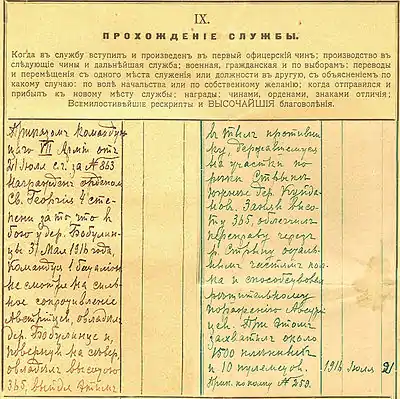 IX.
ПРОХОЖДЕНІЕ СЛУЖБЫ.
Когда въ службу вступилъ и произведенъ въ первый офицерскій чинъ; производство въ
слѣдующіе чины и дальнѣйшая служба: военная, гражданская и по выборамъ: переводы
и перемѣщенія съ одного мѣста служенія или должности въ другую, съ объясненіемъ по
какому случаю: по волѣ начальства или по собственному желанію; когда отправился и
прибылъ къ новому мѣсту службы; награды: чинами, орденами, знаками отличія;
Всемилостивѣйшіе рескрипты и ВЫСОЧАЙШІЯ благоволѣнія.
Приказомъ командую
щаго VII Арміи отъ
21 Іюля с. г. за № 863
награжденъ орденомъ
Св. Георгія 4 сте-
пени за то, что въ
бою у дер. Бобулин-
цы 31 Мая 1916 года,
командуя 1 баталіон.
не смотря на силь-
ное сопротивленіе
Австрійцевъ, овладѣлъ
дер. Бобулинце и,
повернувъ на сѣверъ,
овладѣлъ высотою
365, выйдя этимъ
въ тылъ противни-
ку, державшемуся
на участкѣ по
рѣки Стрыпы
южнѣе дер.
Занявъ высо-
ту 365, облегчилъ
переправу черезъ
р. Стрыпу осталь-
нымъ частямъ пол-
ка и способствовалъ
рѣшительному
пораженію Австрій-
цевъ. При этомъ
захватилъ около
1500 плѣнныхъ
и 10 пулеметовъ. 1916 Іюля 21
Прик. по полку № 259.